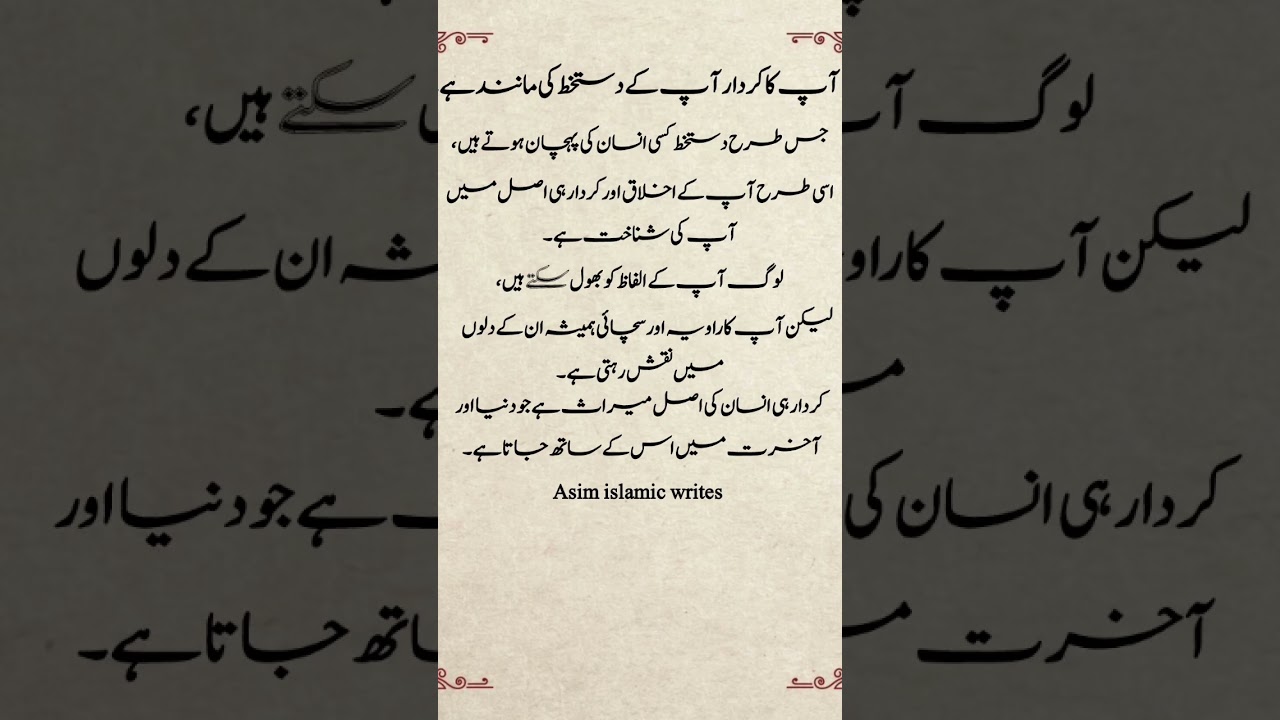 آپ کا کردار آپ کے دستخط کی مانند ہے
جس طرح دستخط کسی انسان کی پہچان ہوتے ہیں،
اسی طرح آپ کے اخلاق اور کردار ہی اصل میں
آپ کی شناخت ہے۔
لوگ آپ کے الفاظ کو بھول سکتے ہیں،
لیکن آپ کا راویہ اور سچائی ہمیشہ ان کے دلوں
میں نقش رہتی ہے۔
کردار ہی انسان کی اصل میراث ہے جو دنیا اور
آخرت میں اس کے ساتھ جاتا ہے۔
Asim islamic writes